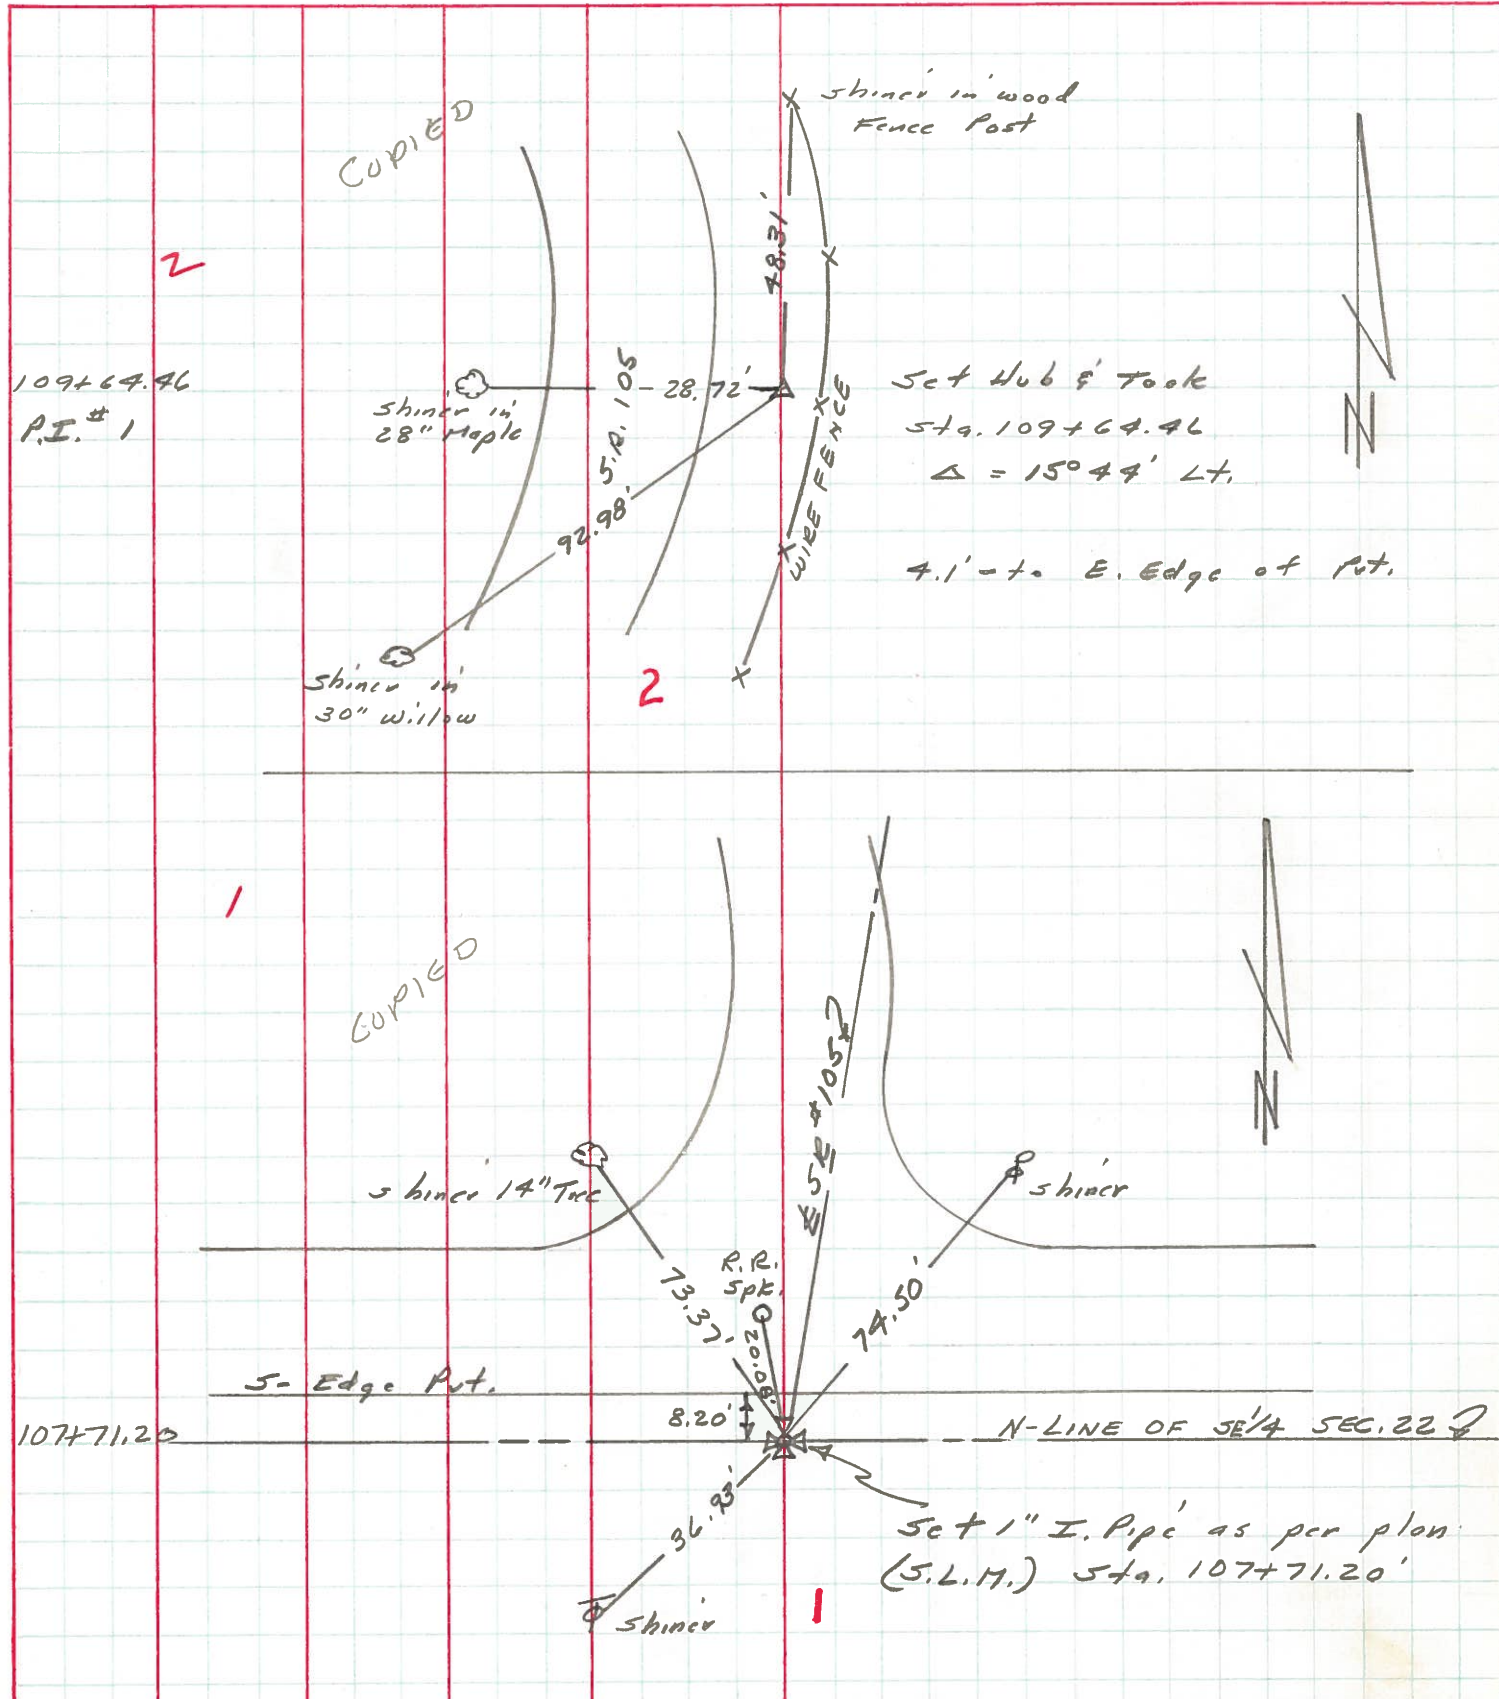 COPIED
shiner in wood
Fence Post
2
48.31'
109+64.46
P.I. # 1
shiner in
28" Maple
S.R. 105
28.72'
WIRE FENCE
Set Hub & Took
Sta. 109+64.46
Δ = 15°44' Lt.
92.98'
4.1' - to E. Edge of Pvt.
shiner in
30" willow
2
N
1
COPIED
℄ SR #105
N
shiner 14" Tree
shiner
R.R.
Spk.
73.37'
20.08'
74.50'
S- Edge Pvt.
8.20'
107+71.20
N-LINE OF SE 1/4 SEC. 22
36.93'
Set 1" I. Pipe as per plan
(S.L.M.) Sta. 107+71.20'
shiner
1